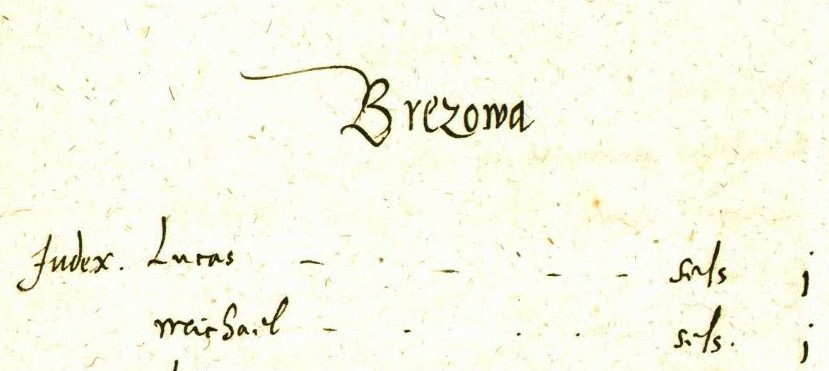 Brezowa
Judex. Lucas - - - - sess j
Meichael - - - - sess. j